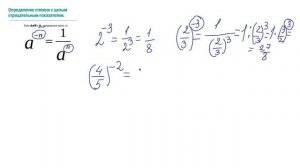 Определение степени с целым
отрицательным показателем.
a^{-n} = \frac{1}{a^n}
2^{-3} = \frac{1}{2^3} = \frac{1}{8}
\left(\frac{2}{3}\right)^{-3} = \frac{1}{\left(\frac{2}{3}\right)^3} = 1 : \left(\frac{2}{3}\right)^3 = 1 \cdot \left(\frac{3}{2}\right)^3 =
= \frac{27}{8}
\left(\frac{4}{5}\right)^{-2} =